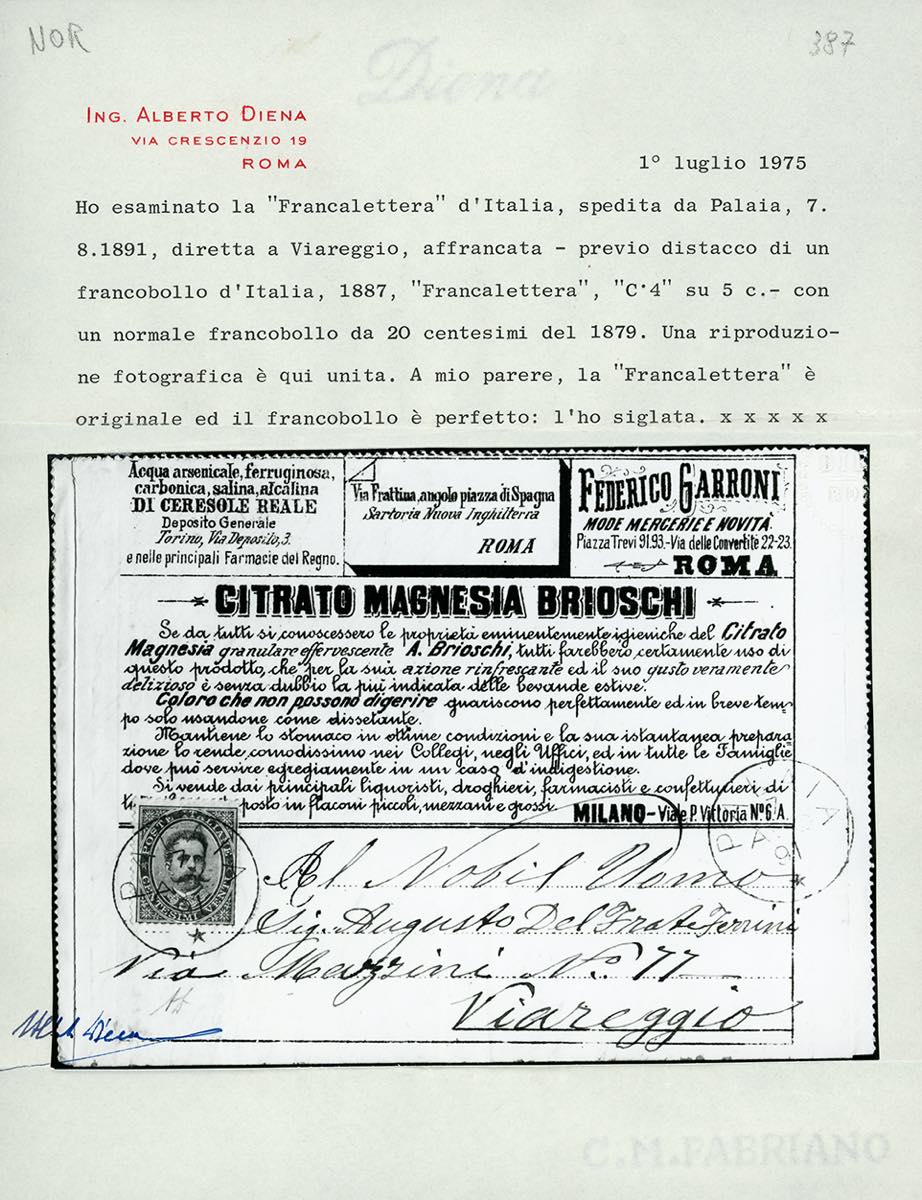 NOR
387
Diena
ING. ALBERTO DIENA
VIA CRESCENZIO 19
ROMA
1° luglio 1975
Ho esaminato la "Francalettera" d'Italia, spedita da Palaia, 7.
8.1891, diretta a Viareggio, affrancata - previo distacco di un
francobollo d'Italia, 1887, "Francalettera", "C·4" su 5 c.- con
un normale francobollo da 20 centesimi del 1879. Una riproduzio-
ne fotografica è qui unita. A mio parere, la "Francalettera" è
originale ed il francobollo è perfetto: l'ho siglata. x x x x x
Acqua arsenicale, ferruginosa,
carbonica, salina, alcalina
DI CERESOLE REALE
Deposito Generale
Torino, Via Deposito, 3.
e nelle principali Farmacie del Regno.
Via Frattina, angolo piazza di Spagna
Sartoria Nuova Inghilterra
ROMA
FEDERICO GARRONI
MODE MERCERIE E NOVITÀ
Piazza Trevi 91.93.-Via delle Convertite 22-23.
ROMA
CITRATO MAGNESIA BRIOSCHI
Se da tutti si conoscessero le proprietà eminentemente igieniche del Citrato
Magnesia granulare effervescente A. Brioschi, tutti farebbero certamente uso di
questo prodotto, che per la sua azione rinfrescante ed il suo gusto veramente
delizioso è senza dubbio la più indicata delle bevande estive.
Coloro che non possono digerire guariscono perfettamente ed in breve tem-
po solo usandone come dissetante.
Mantiene lo stomaco in ottime condizioni e la sua istantanea prepara-
zione lo rende comodissimo nei Collegi, negli Uffici, ed in tutte le Famiglie
dove può servire egregiamente in un caso d'indigestione.
Si vende dai principali liquoristi, droghieri, farmacisti e confetturieri di
posto in flaconi piccoli, mezzani e grossi.
MILANO - Viale P. Vittoria N° 6/A.
POSTE ITALIANE
CENTESIMI VENTI
Al Nobil Uomo
Sig. Augusto Del Frate Ferrini
Via Mazzini No. 77
Viareggio
C.M.FABRIANO